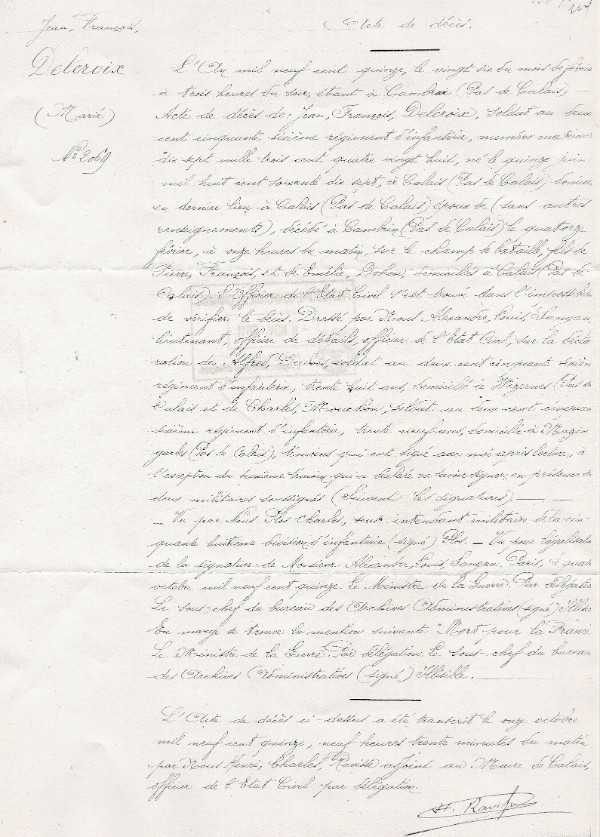 Jean, François,
Delcroix
(Marié)
Nº 2069
Acte de décès.
L'An mil neuf cent quinze, le vingt six du mois de février
à trois heures du soir, étant à Cambrin (Pas de Calais)
Acte de décès de Jean, François, Delcroix, soldat au deux
cent cinquante sixième régiment d'infanterie, numéro matricule
dix sept mille trois cent quatre vingt huit, né le quinze juin
mil huit cent soixante dix sept, à Calais (Pas de Calais) domicilié
en dernier lieu à Calais (Pas de Calais) époux de (sans autres
renseignements), décédé à Cambrin (Pas de Calais) le quatorze
février, à onze heures du matin, sur le champ de bataille, fils de
Pierre, François, et de Emélie, domiciliés à Calais (Pas de
Calais) l'officier de l'Etat Civil s'est trouvé dans l'impossibilité
de vérifier le décès. Dressé par Nous Alexandre, Louis,
lieutenant, officier de détails, officier de l'Etat Civil, sur la décla
ration de Alfred, soldat au deux cent cinquante sixième
régiment d'infanterie, trente huit ans, domicilié à Wizernes (Pas de
Calais et de Charles, Mouchon, soldat au deux cent cinquante
sixième régiment d'infanterie, trente ans, domicilié à Mazin
garbe (Pas de Calais), témoins qui ont signé avec moi après lecture, à
l'exception du deuxième témoin qui a déclaré ne savoir signer, en présence de
deux militaires soussignés (Suivent les signatures). —
— Vu par Nous Charles, sous intendant militaire de la cin
quante huitième division d'infanterie (signé) — Vu pour légalisation
de la signature de Monsieur Alexandre, Louis, Paris, le quatre
octobre mil neuf cent quinze. Le Ministre de la Guerre. Par délégation
Le sous-chef du bureau des Archives Administratives (signé) Illisible
En marge se trouve la mention suivante "Mort pour la France
Le Ministre de la Guerre. Par délégation, le sous-chef du bureau
des Archives Administratives (signé) Illisible. —
L'Acte de décès ci-dessus a été transcrit le onze octobre
mil neuf cent quinze, neuf heures trente minutes du matin
par Nous Henri, Charles, Ravisse adjoint au Maire de Calais,
officier de l'Etat Civil par délégation.
H. Ravisse